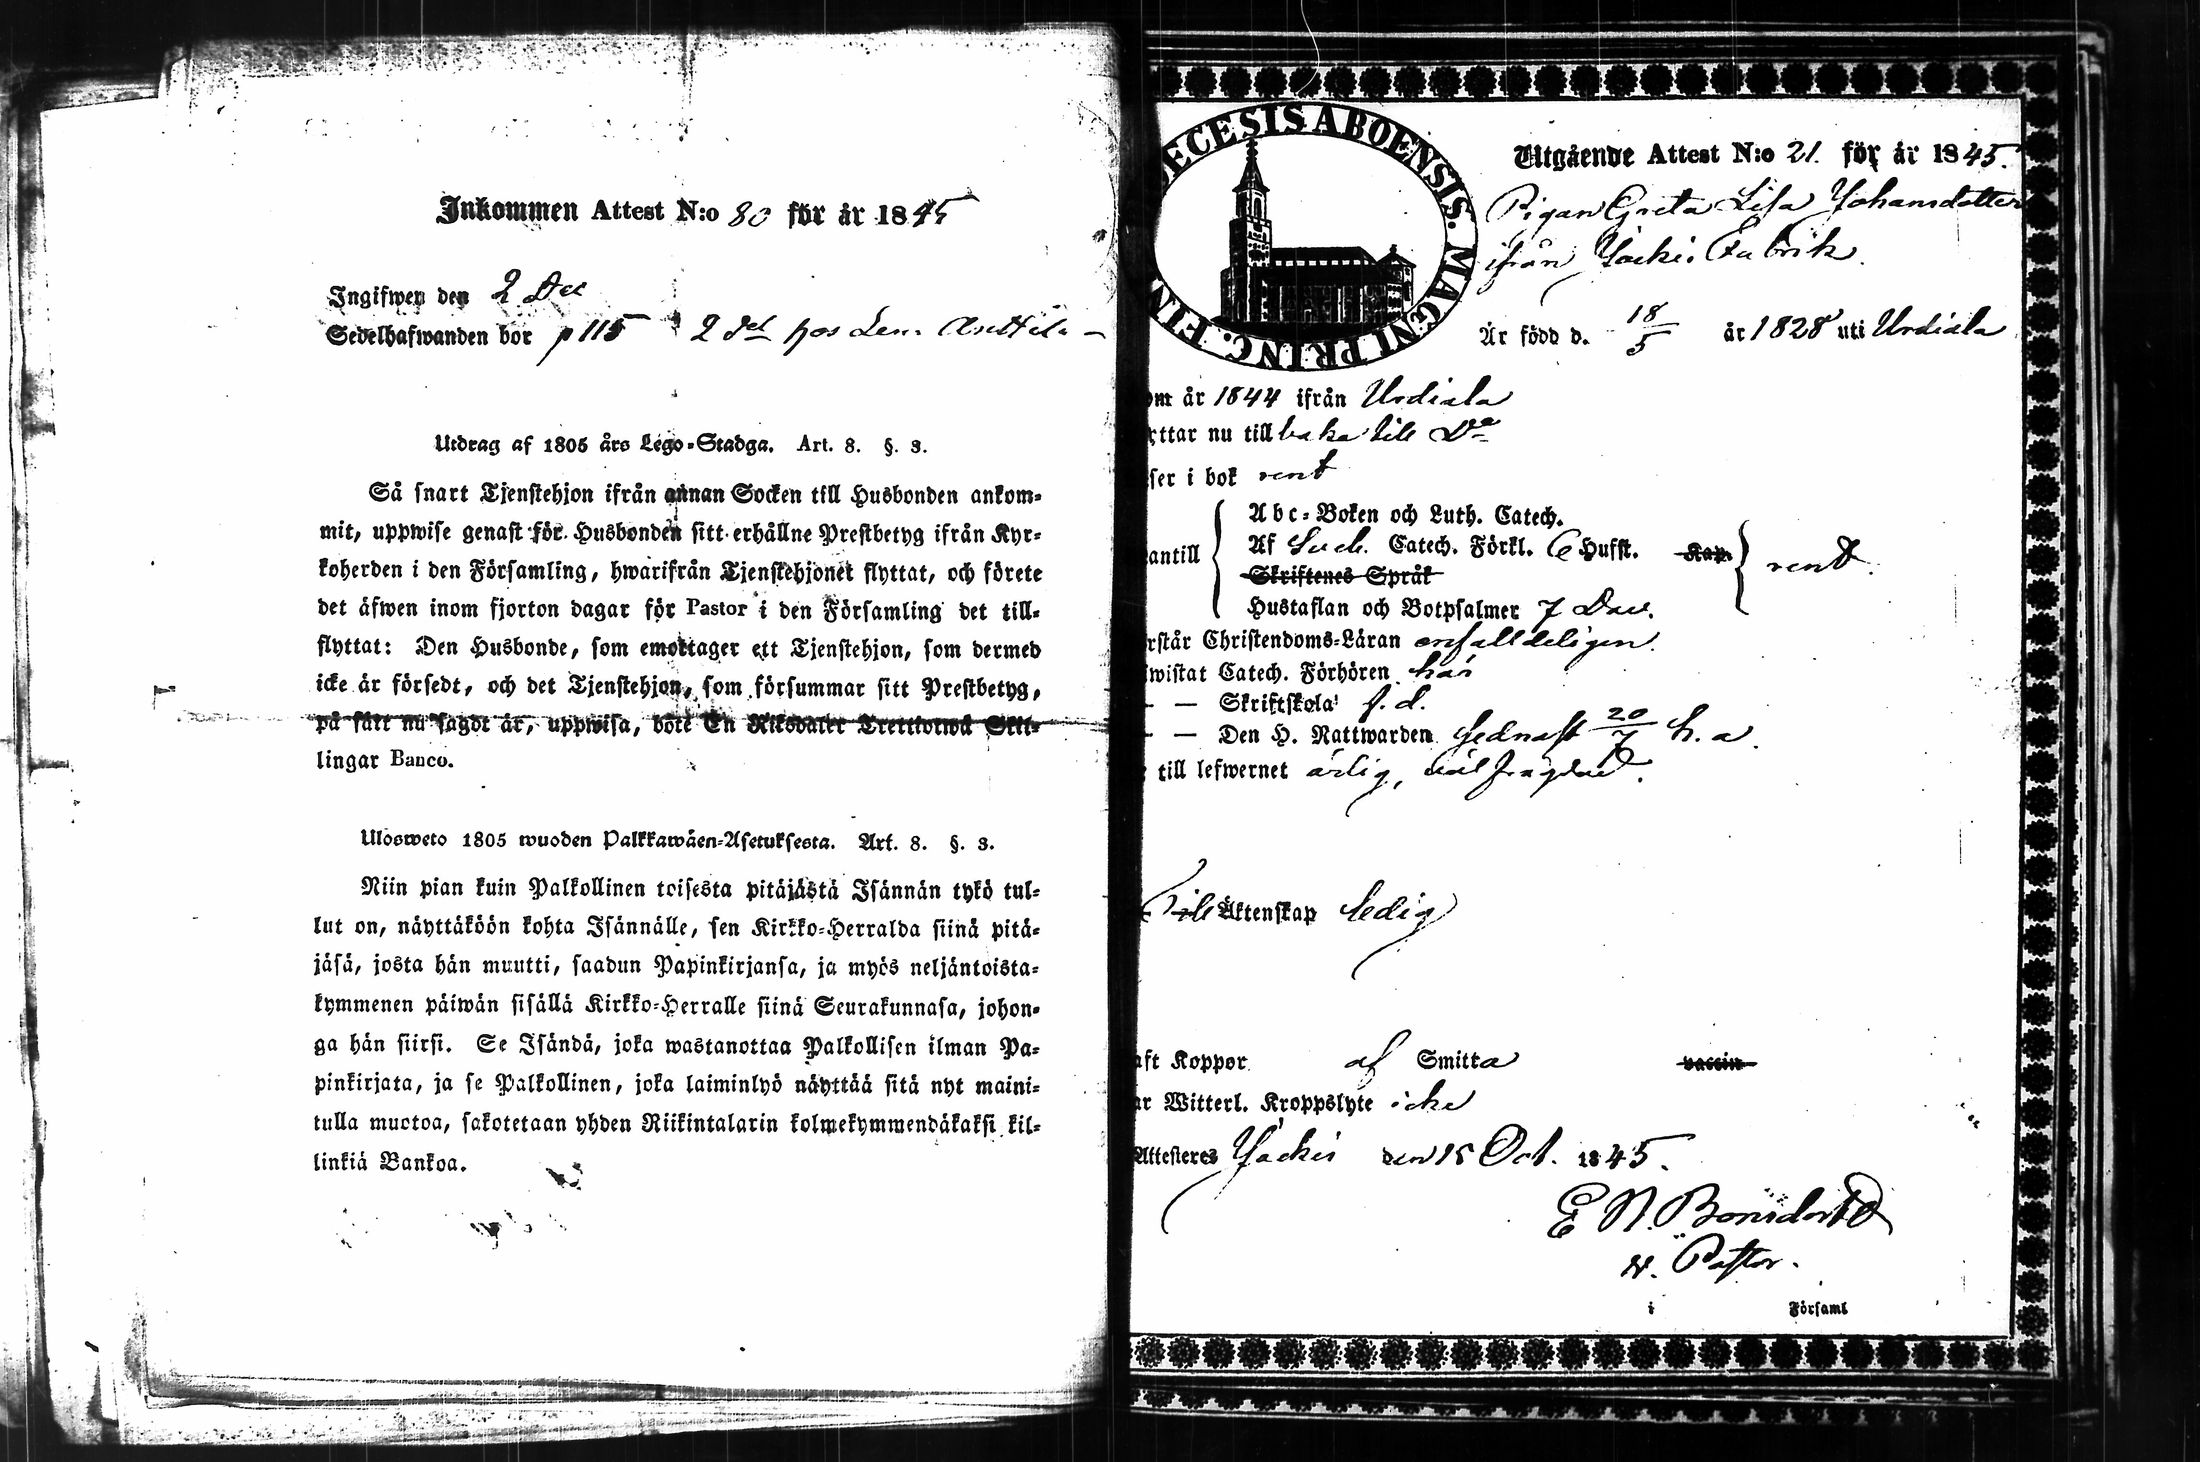 Inkommen Attest N:o 80 för år 1845
Ingifwen den 2 Dec
Sedelhafwanden bor p 115 2 del hos
Utdrag af 1805 års Lego-Stadga. Art. 8. §. 3.
Så snart Tjenstehjon ifrån annan Socken till Husbonden ankom-
mit, uppwise genast för Husbonden sitt erhållne Prestbetyg ifrån Kyr-
koherden i den Församling, hwarifrån Tjenstehjonet flyttat, och förete
det äfwen inom fjorton dagar för Pastor i den Församling det till-
flyttat: Den Husbonde, som emottager ett Tjenstehjon, som dermed
icke är försedt, och det Tjenstehjon, som försummar sitt Prestbetyg,
på sätt nu sagdt är, uppwisa, böte En Riksdaler Trettiotwå Skil-
lingar Banco.
Ulosweto 1805 wuoden Palkkawäen-Asetuksesta. Art. 8. §. 3.
Niin pian kuin Palkollinen toisesta pitäjästä Isännän tykö tul-
lut on, näyttäköön kohta Isännälle, sen Kirkko-Herralda siinä pitä-
jäsä, josta hän muutti, saadun Papinkirjansa, ja myös neljäntoista-
kymmenen päiwän sisällä Kirkko-Herralle siinä Seurakunnasa, johon-
ga hän siirsi. Se Isändä, joka wastanottaa Palkollisen ilman Pa-
pinkirjata, ja se Palkollinen, joka laiminlyö näyttää sitä nyt maini-
tulla muotoa, sakotetaan yhden Riikintalarin kolmekymmendäkaksi kil-
linkiä Bankoa.
ECESIS ABOENSIS. MAGNI PRINC. FIN
Utgående Attest N:o 21. för år 1845.
Pigan Greta Lisa Johansdotter
ifrån Jockis Fabrik.
Är född d. 18/5 år 1828 uti Urdiala
om år 1844 ifrån Urdiala
yttar nu till baka till Do
ser i bok rent
antill
Abc-Boken och Luth. Catech.
Af Sveb. Catech. Förkl. 6 Hufst. Kap. rent.
Skriftenes Språk
Hustaflan och Botpsalmer 7 Dav.
rstår Christendoms-Läran enfaldeligen.
iwistat Catech. Förhören här
– – Skriftskola s. d.
– – Den H. Nattwarden sednast 20/7 h. a.
till lefwernet ärlig, väl frägdad.
Till Äktenskap ledig
aft Koppor af Smitta vaccin
ar Witterl. Kroppslyte icke
Attesteres Jockis den 15 Oct. 1845.
E N. Bonsdorff
v. Pastor.
i Församl